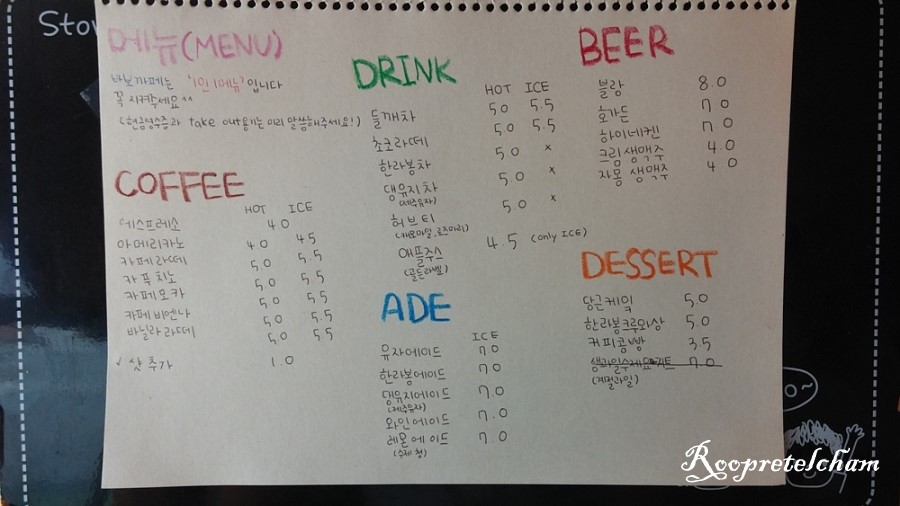 Stor
메뉴(MENU)
바보카페는 '1인 1메뉴'입니다
꼭 시켜주세요^^
(현금영수증과 take out용기는 미리 말씀해주세요!)
COFFEE
HOT ICE
에스프레소 4.0
아메리카노 4.0 4.5
카페라떼 5.0 5.5
카푸치노 5.0 5.5
카페모카 5.0 5.5
카페비엔나 5.0 5.5
바닐라라떼 5.0 5.5
✓ 샷 추가 1.0
DRINK
HOT ICE
들깨차 5.0 5.5
초코라떼 5.0 5.5
한라봉차 5.0 x
댕유지차 5.0 x
(제주유자)
허브티 5.0 x
(캐모마일, 로즈마리)
애플주스 4.5 (only ICE)
(골든라벨)
ADE
ICE
유자에이드 7.0
한라봉에이드 7.0
댕유지에이드 7.0
(제주유자)
와인에이드 7.0
레몬에이드 7.0
(수제청)
BEER
블랑 8.0
호가든 7.0
하이네켄 7.0
크림생맥주 4.0
자몽 생맥주 4.0
DESSERT
당근케익 5.0
한라봉크루와상 5.0
커피콩빵 3.5
생과일수제요거트 7.0
(계절과일)
Roopretelcham